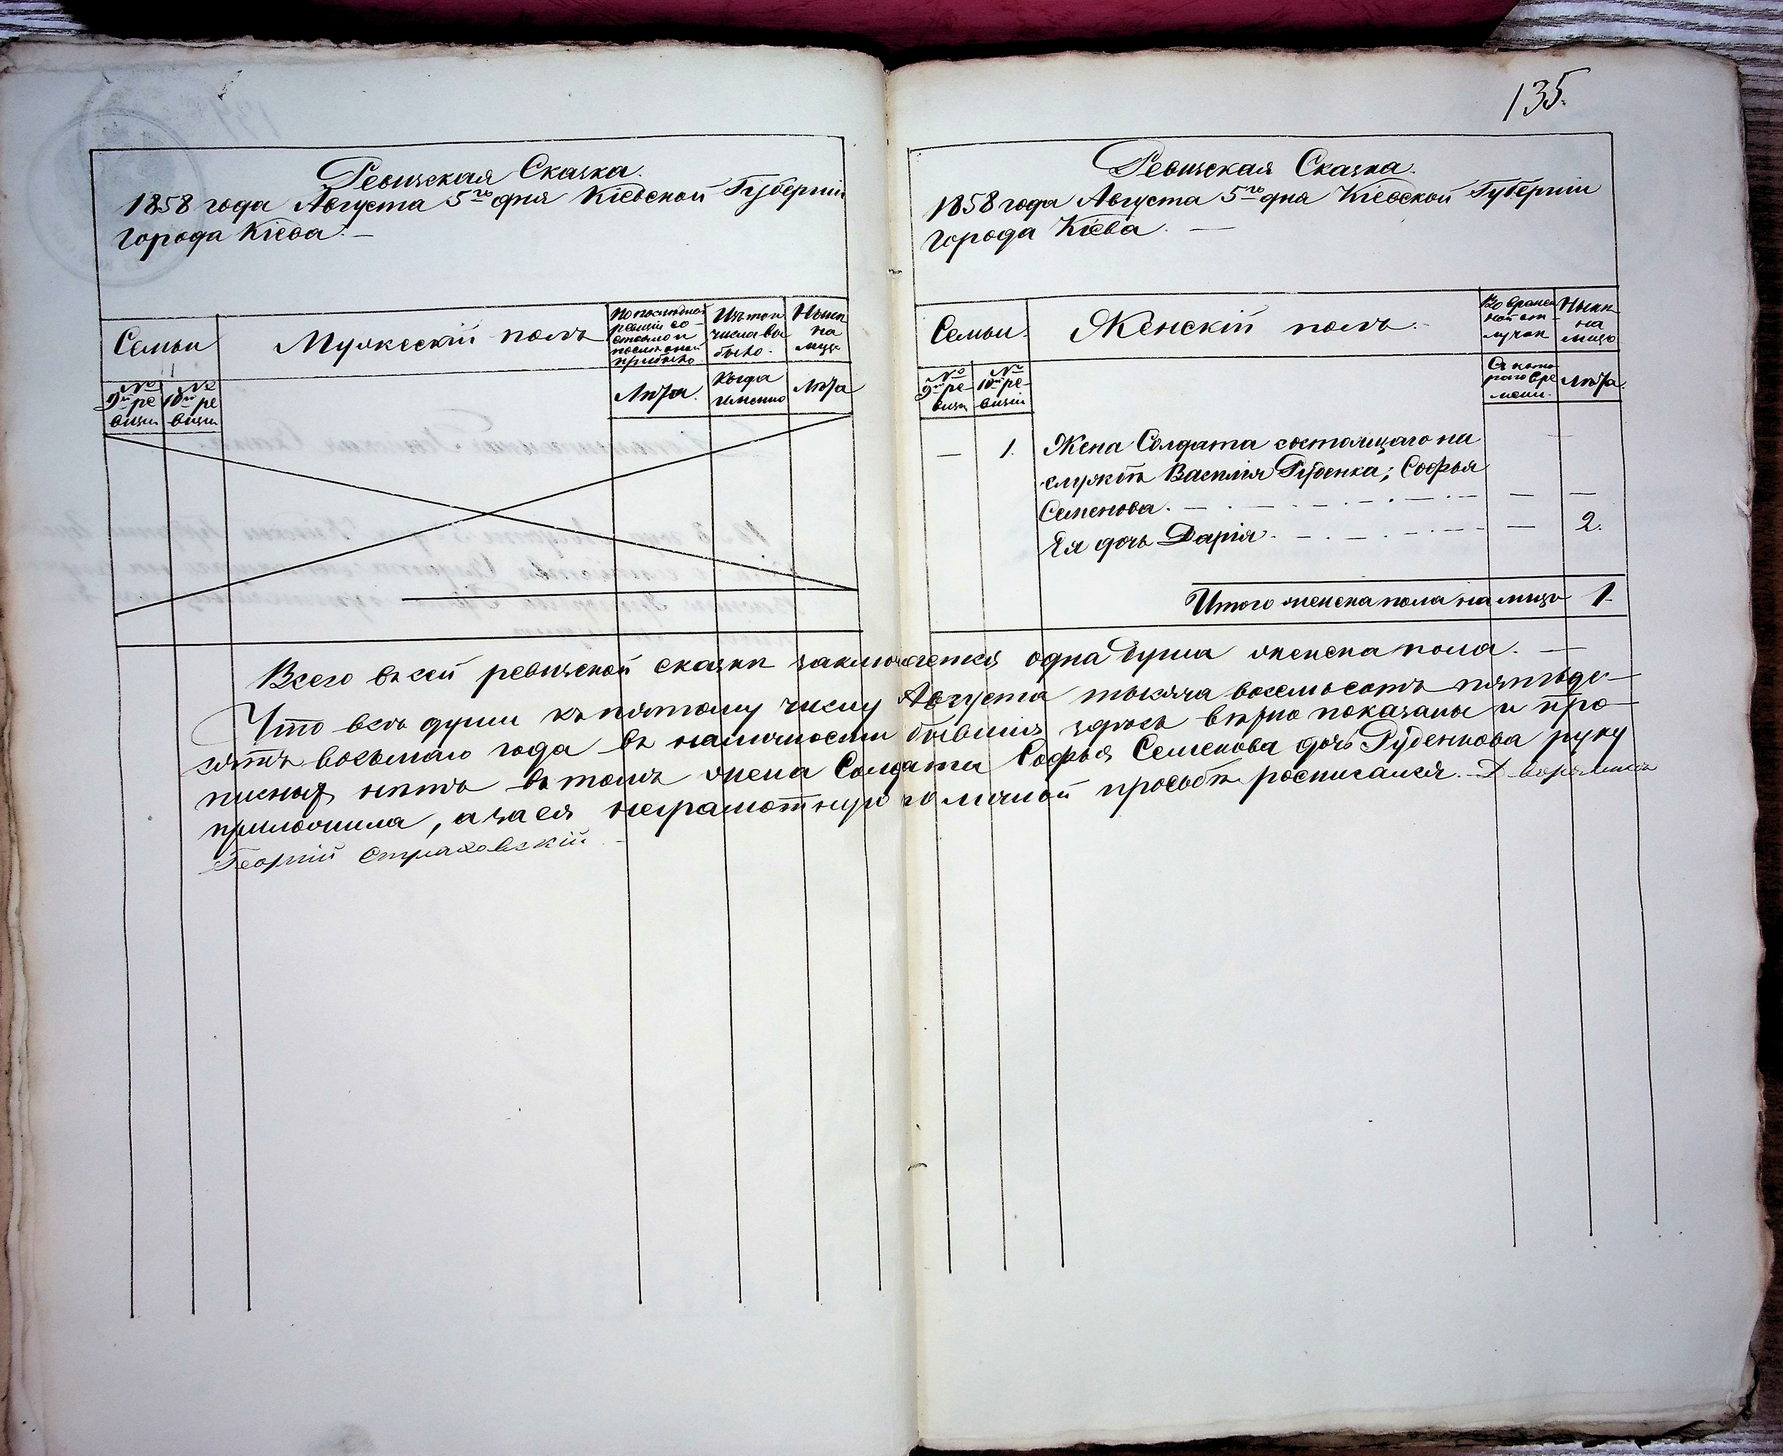 135.
Ревизская Сказка.
1858 года Августа 5го дня Кіевской Губерніи
города Кіева. —
Семьи
Мужескій полъ
По последней
ревизіи со-
стояло и
после оной
прибыло
Изъ того
числа вы-
было.
Ныне
на
лицо
№
9й ре
визіи
№
10й ре
визіи
Лета.
Когда
именно
Лета
Ревизская Сказка.
1858 года Августа 5го дня Кіевской Губерніи
города Кіева. —
Семьи
Женскій полъ.
Во времен-
ной от-
лучке
Ныне
на
лицо
№
9й ре-
визіи
№
10й ре-
визіи
Съ кото-
раго вре
мени.
Лета.
— 1. Жена Солдата состоящаго на
службѣ Василія Руденка; Софья
Семенова. — — —
Ея дочь Дарія. — — 2.
Итого женска пола на лицо 1
Всего въ сей ревизской сказкѣ заключается одна душа женска пола. —
Что всѣ души къ пятому числу Августа тысяча восемьсотъ пятьде-
сятъ восьмаго года въ наличности бывшія здѣсь вѣрно показаны и про-
писныхъ нѣтъ въ томъ жена Солдата Софья Семенова дочь Руденкова руку
приложила, а за ея неграмотную по личной просьбѣ росписался. Дворянинъ
Георгій Страховскій. —